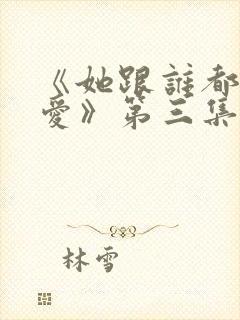 《她跟誰都
愛》第三集
林雪